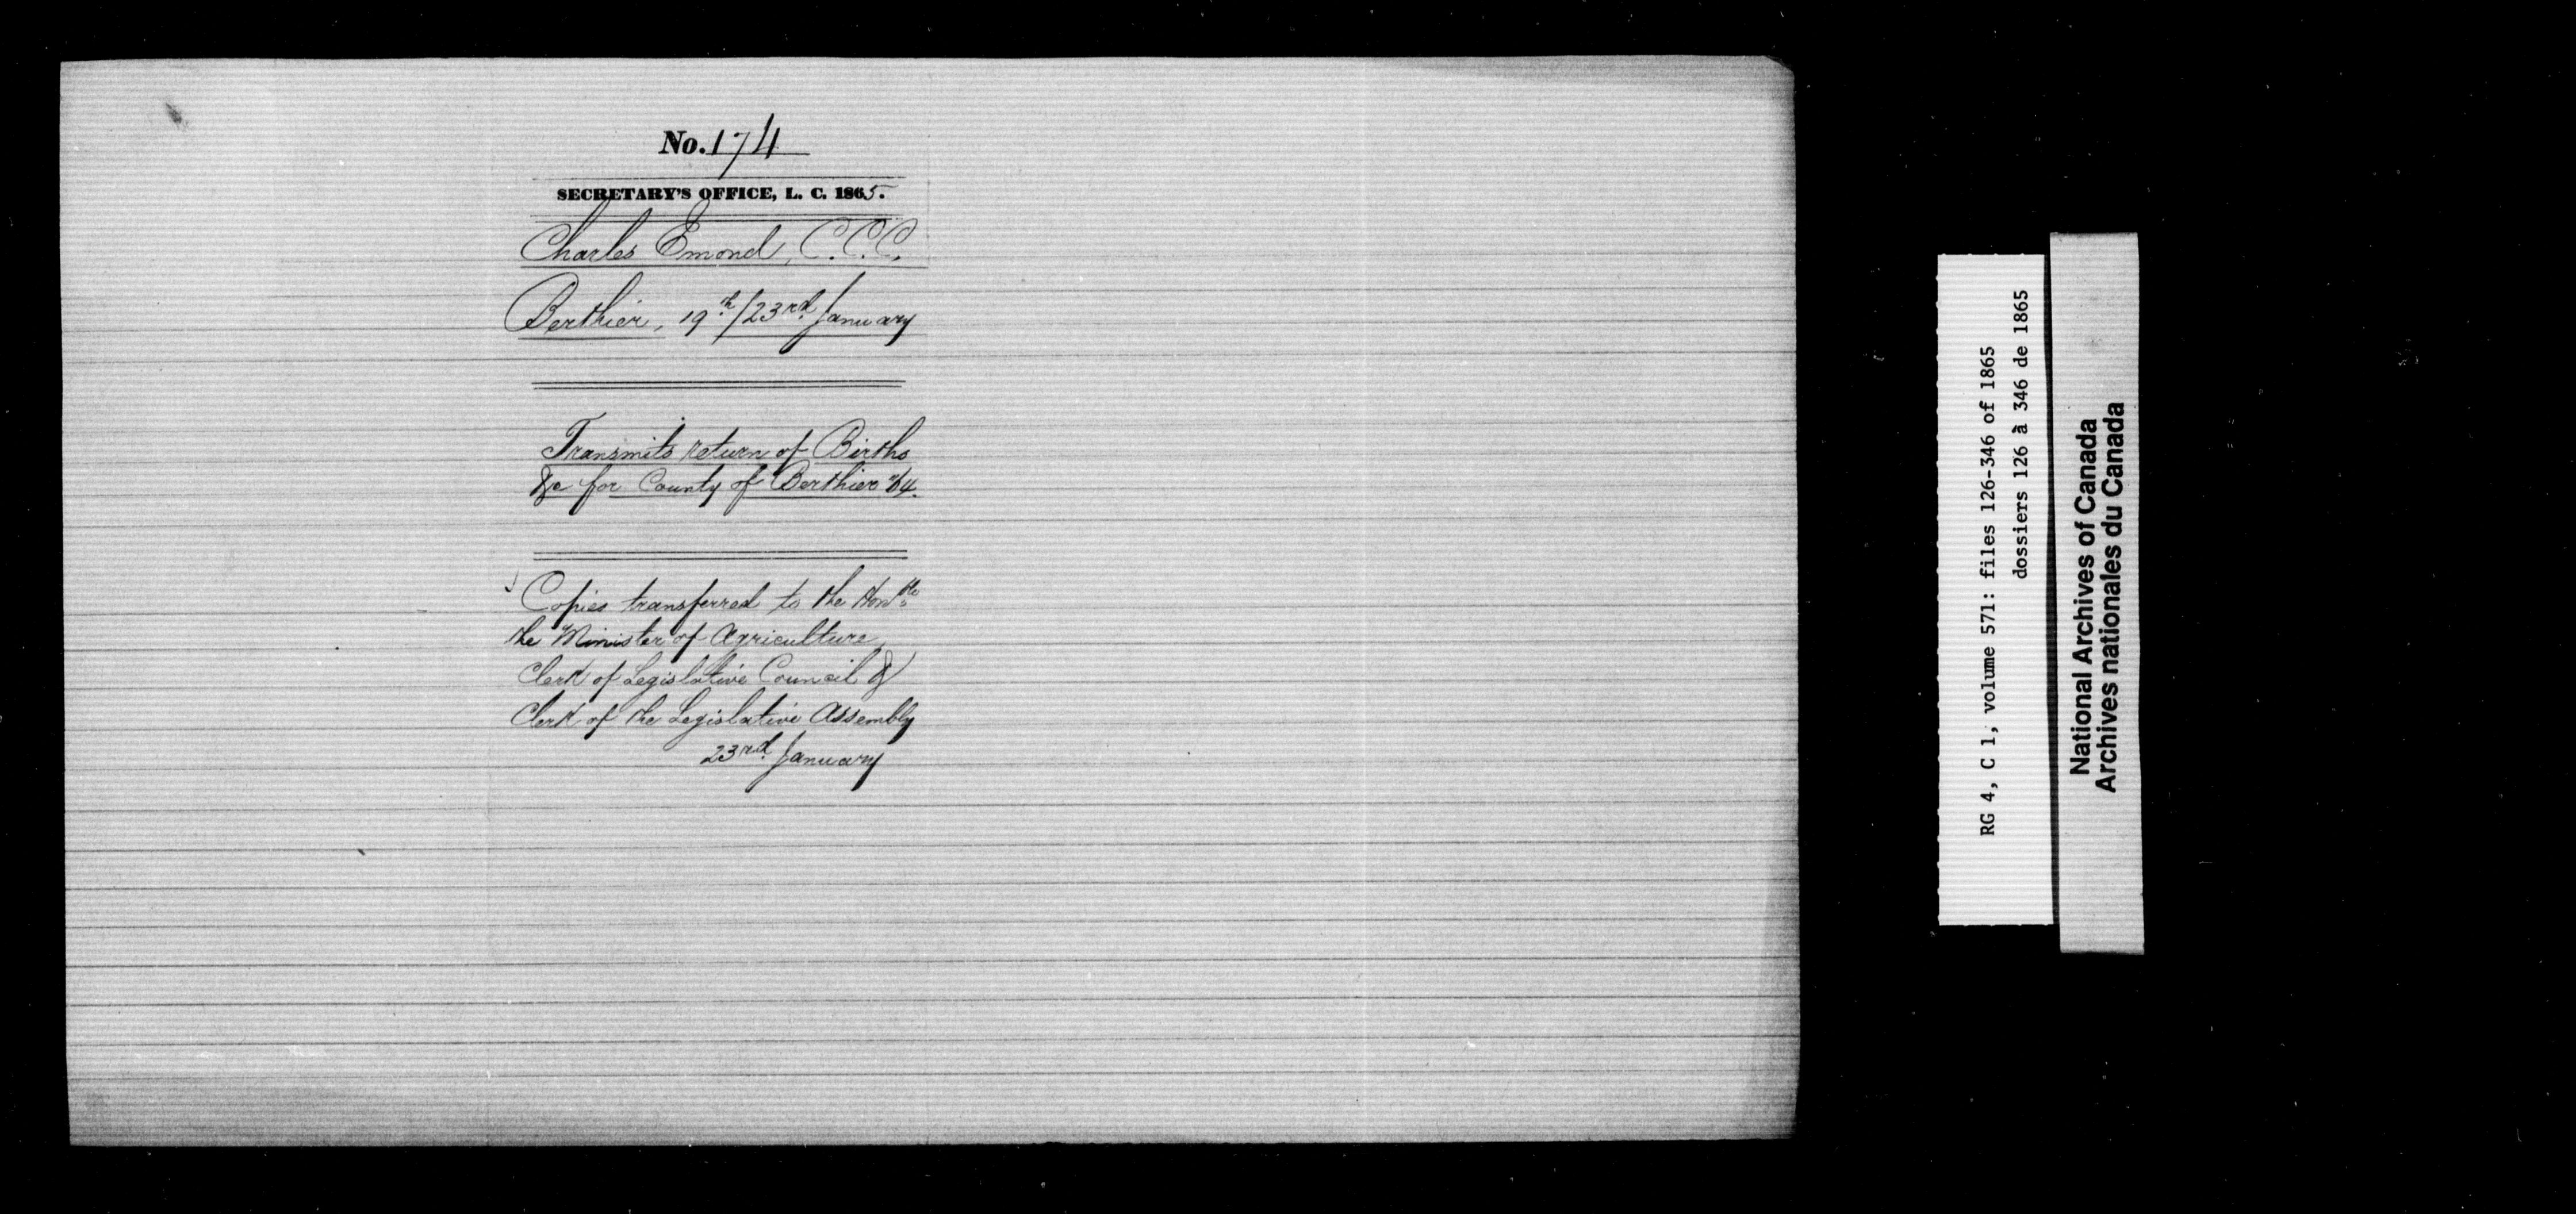 No. 174
SECRETARY'S OFFICE, L. C. 1865.
Charles Emond, C.C.C.
Berthier, 19th/23rd January
Transmits return of Births
&c for County of Berthier /64.
Copies transferred to the Honble
the Minister of Agriculture,
Clerk of Legislative Council &
Clerk of the Legislative Assembly
23rd January
RG 4, C 1, volume 571: files 126-346 of 1865
dossiers 126 à 346 de 1865
National Archives of Canada
Archives nationales du Canada